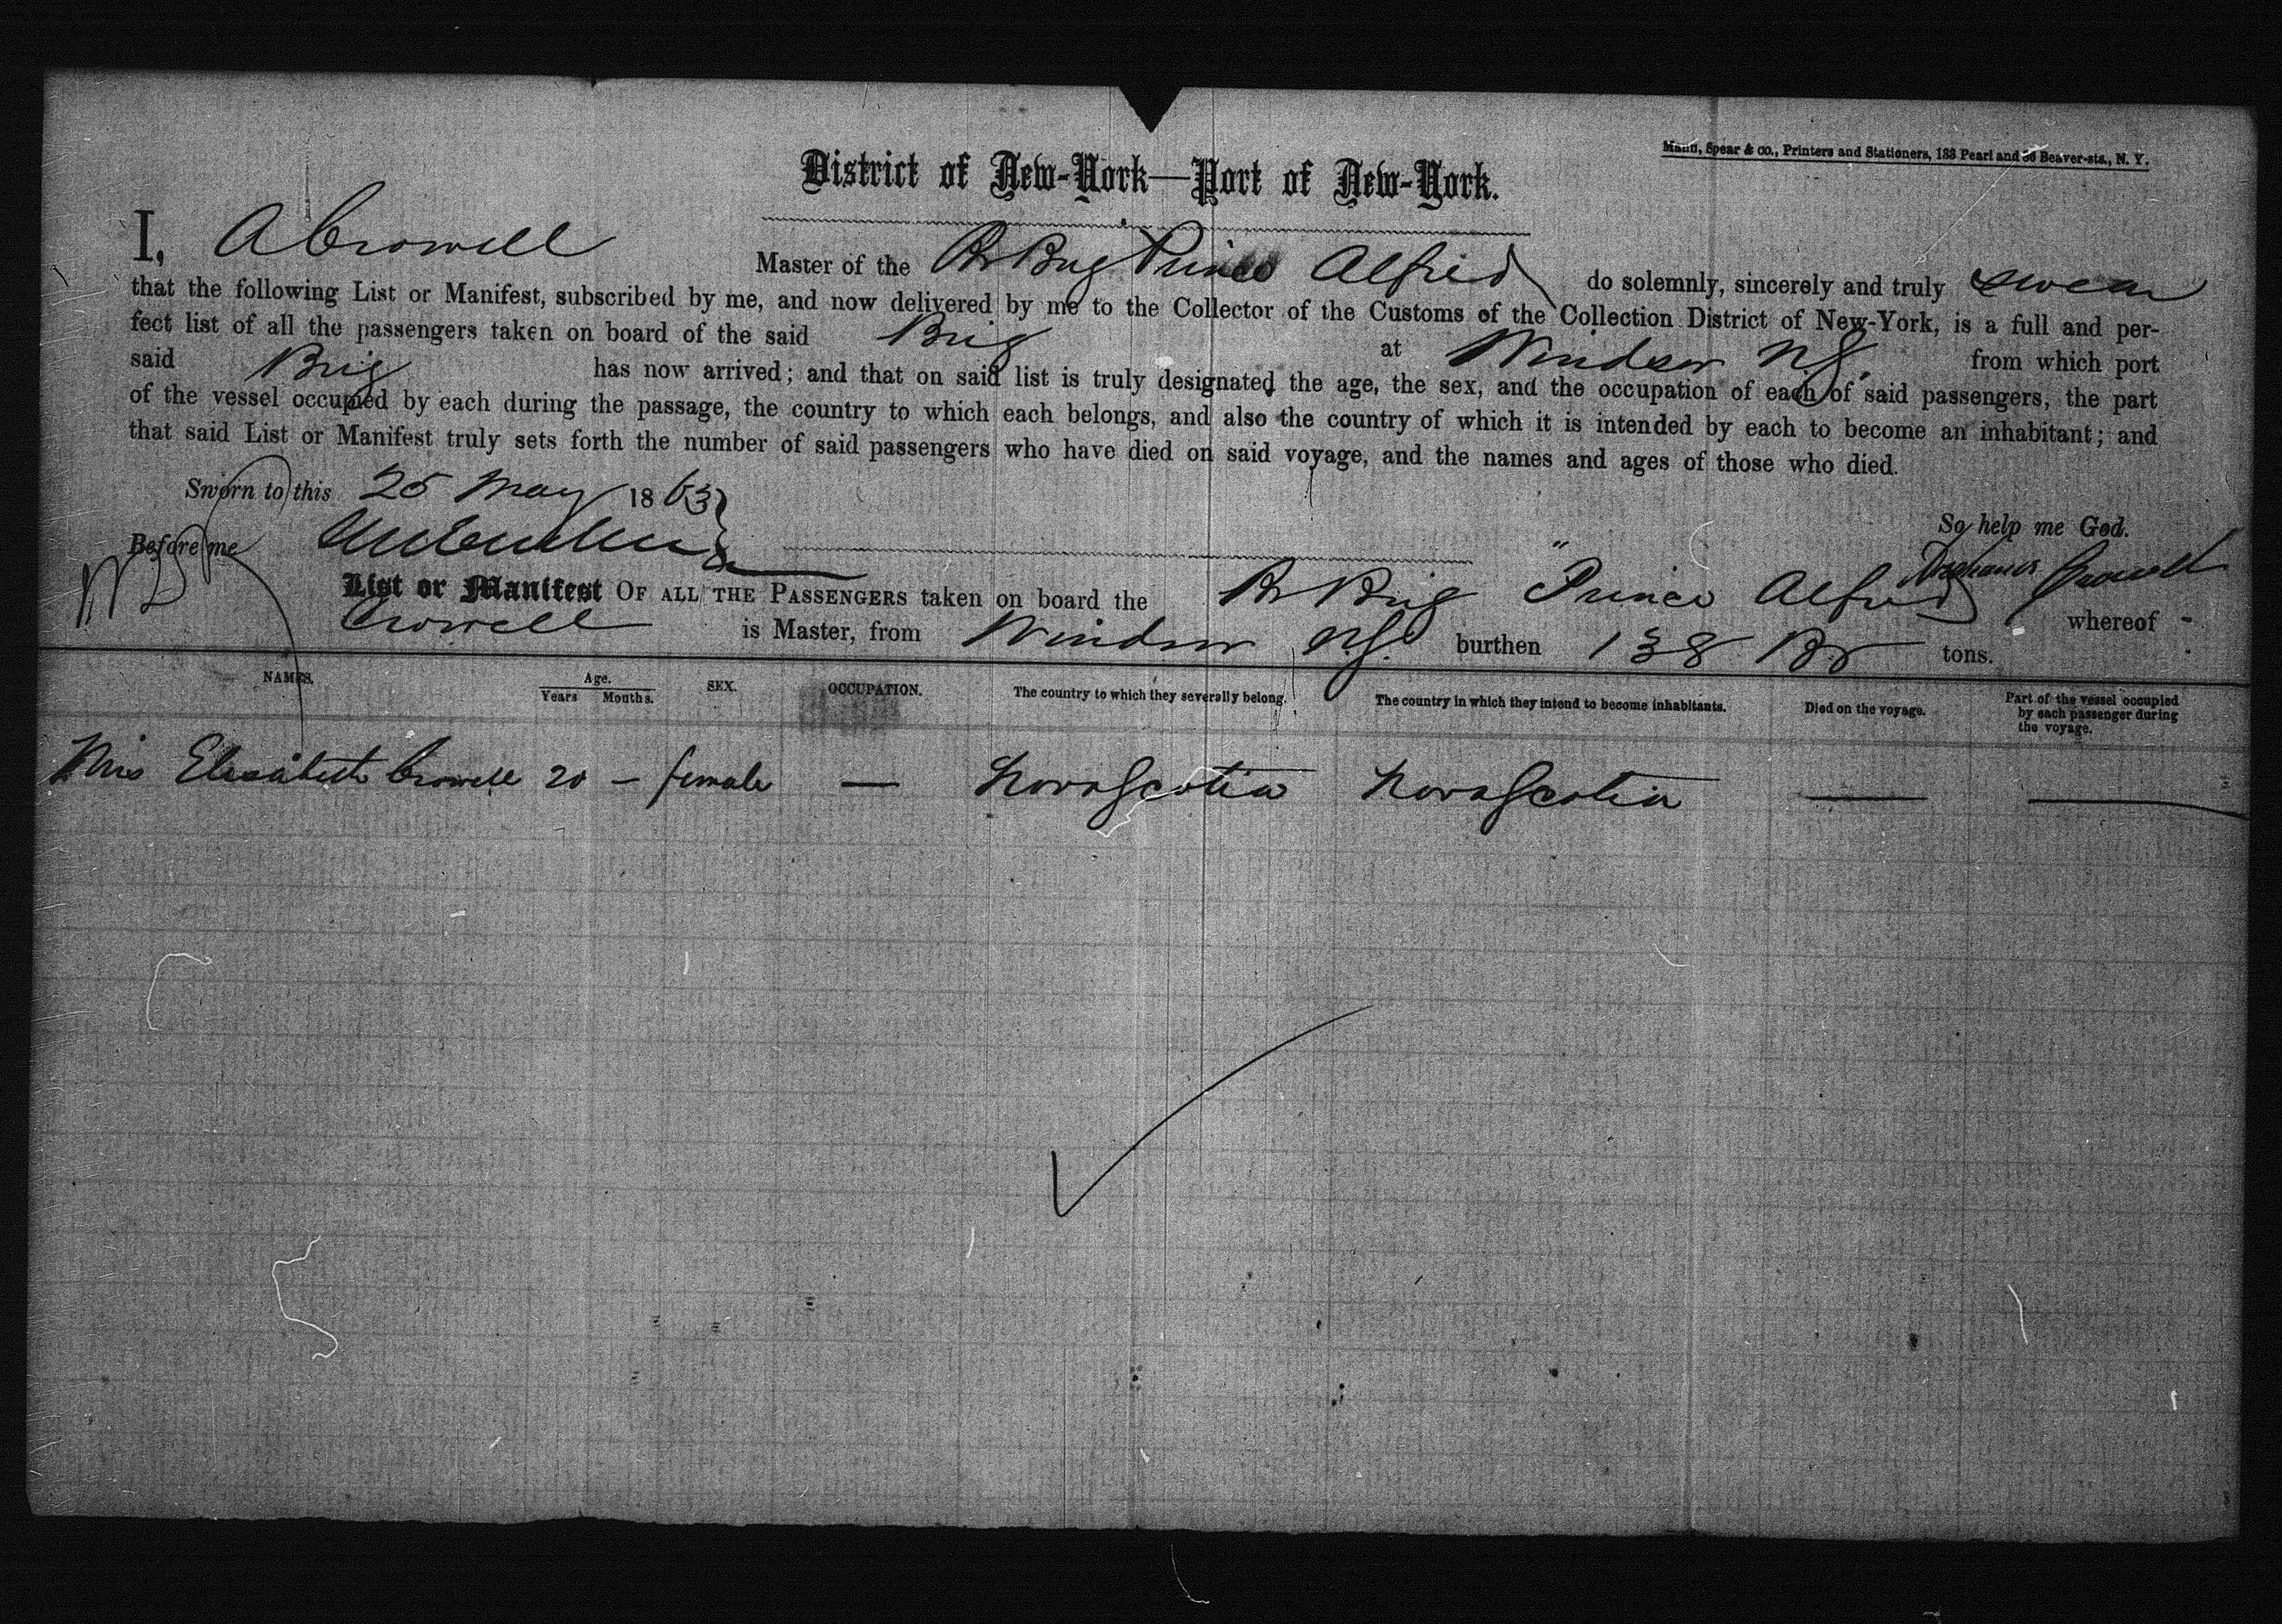 Mann, Spear & Co., Printers and Stationers, 133 Pearl and 36 Beaver-sts., N. Y.
District of New-York—Port of New-York.
I, A Crowell Master of the Br Brig Prince Alfred do solemnly, sincerely and truly swear
that the following List or Manifest, subscribed by me, and now delivered by me to the Collector of the Customs of the Collection District of New-York, is a full and per-
fect list of all the passengers taken on board of the said Brig at Windsor N.S. from which port
said Brig has now arrived; and that on said list is truly designated the age, the sex, and the occupation of each of said passengers, the part
of the vessel occupied by each during the passage, the country to which each belongs, and also the country of which it is intended by each to become an inhabitant; and
that said List or Manifest truly sets forth the number of said passengers who have died on said voyage, and the names and ages of those who died.
Sworn to this 25 May 1863
So help me God.
Before me
Crowell
List or Manifest OF ALL THE PASSENGERS taken on board the Br Brig "Prince Alfred whereof
Crowell is Master, from Windsor N.S. burthen 138 Br tons.
NAMES. Age. Years Months. SEX. OCCUPATION. The country to which they severally belong. The country in which they intend to become inhabitants. Died on the voyage. Part of the vessel occupied by each passenger during the voyage.
Elizabeth Crowell 20 — female — Nova Scotia Nova Scotia — —